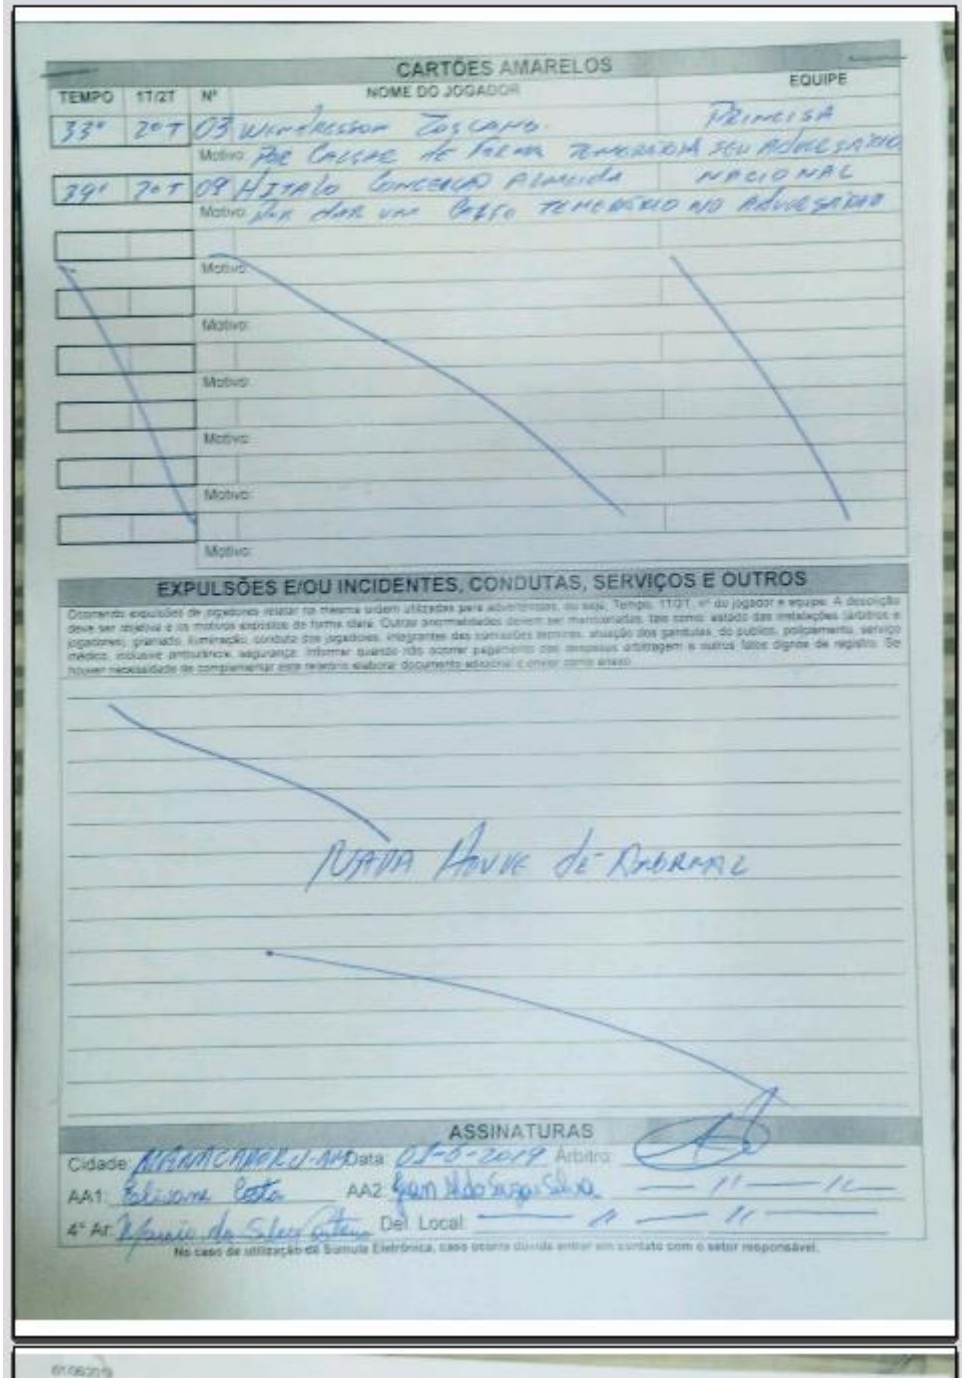 CARTÕES AMARELOS
TEMPO 1T/2T Nº NOME DO JOGADOR EQUIPE
33' 2ºT 03 WENDRESSON TOSCANO. PRINCESA
Motivo: POR CALÇAR DE FORMA TEMERÁRIA SEU ADVERSÁRIO
39' 2ºT 09 HITALO CONCEIÇÃO ALMEIDA NACIONAL
Motivo: POR DAR UM TEMERÁRIO NO ADVERSÁRIO
Motivo:
Motivo:
Motivo:
Motivo:
Motivo:
Motivo:
EXPULSÕES E/OU INCIDENTES, CONDUTAS, SERVIÇOS E OUTROS
Ocorrendo expulsões de jogadores relatar na mesma ordem utilizadas para advertências, ou seja, Tempo, 1T/2T, nº do jogador e equipe. A descrição
deve ser objetiva e os motivos expostos de forma clara. Outras anormalidades devem ser mencionadas, tais como: estado das instalações (árbitros e
jogadores), gramado, iluminação, conduta dos jogadores, integrantes das comissões técnicas, atuação dos gandulas, do público, policiamento, serviço
médico, inclusive ambulância, segurança. Informar quando não ocorrer pagamento das despesas arbitragem e outros fatos dignos de registro. Se
houver necessidade de complementar este relatório elaborar documento adicional e enviar como anexo.
NADA HOUVE DE ANORMAL
ASSINATURAS
Cidade: MANACAPURU-AM Data: 01-6-2019 Árbitro:
AA1: Costa AA2:
4° Ar: da Silva Del. Local:
No caso de utilização de Súmula Eletrônica, caso ocorra dúvida entrar em contato com o setor responsável.
01/06/2019